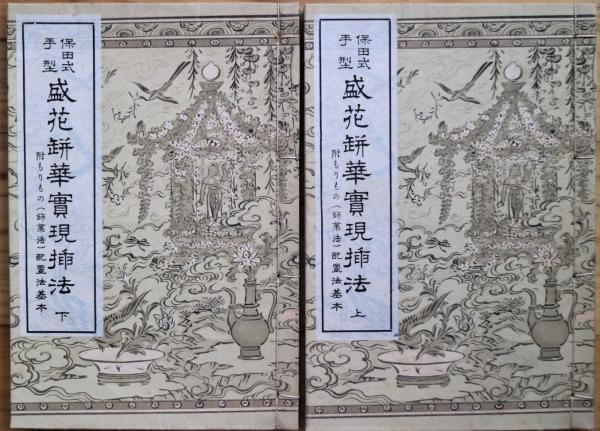 保田式
手型
盛花缾華實現揷法
附もりもの(飾葉法)配置法基本
下
保田式
手型
盛花缾華實現揷法
附もりもの(飾葉法)配置法基本
上